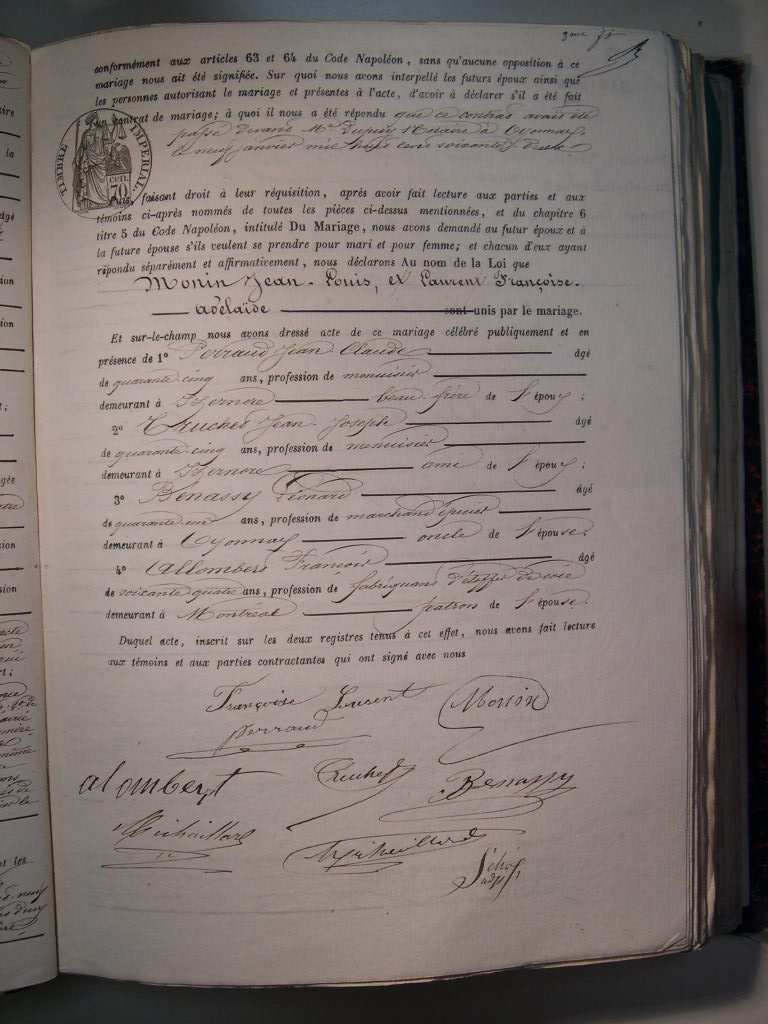 2me ft
conformément aux articles 63 et 64 du Code Napoléon, sans qu'aucune opposition à ce
mariage nous ait été signifiée. Sur quoi nous avons interpellé les futurs époux ainsi que
les personnes autorisant le mariage et présentes à l'acte, d'avoir à déclarer s'il a été fait
un contrat de mariage; à quoi il nous a été répondu que ce contrat avait été
passé devant Me Dupuy Notaire à Oyonnax
le neuf janvier mil huit cent soixante
TIMBRE IMPERIAL
CENT. 70
Puis, faisant droit à leur réquisition, après avoir fait lecture aux parties et aux
témoins ci-après nommés de toutes les pièces ci-dessus mentionnées, et du chapitre 6
titre 5 du Code Napoléon, intitulé Du Mariage, nous avons demandé au futur époux et à
la future épouse s'ils veulent se prendre pour mari et pour femme; et chacun d'eux ayant
répondu séparément et affirmativement, nous déclarons Au nom de la Loi que
Monin Jean-Louis, et Laurent Françoise-
adélaïde sont unis par le mariage.
Et sur-le-champ nous avons dressé acte de ce mariage célébré publiquement et en
présence de 1o Perraud Jean Claude âgé
de quarante cinq ans, profession de menuisier
demeurant à Izernore beau-frère de l'époux;
2o Truchet Jean-Joseph âgé
de quarante cinq ans, profession de menuisier
demeurant à Izernore ami de l'époux;
3o Benassy Léonard âgé
de quarante un ans, profession de marchand épicier
demeurant à Oyonnax oncle de l'épouse
4o Allombert François âgé
de soixante quatre ans, profession de fabriquant d'étoffe de soie
demeurant à Montréal patron de l'épouse.
Duquel acte, inscrit sur les deux registres tenus à cet effet, nous avons fait lecture
aux témoins et aux parties contractantes qui ont signé avec nous
Françoise Laurent Monin
Perraud
alombert Truchet Benassy